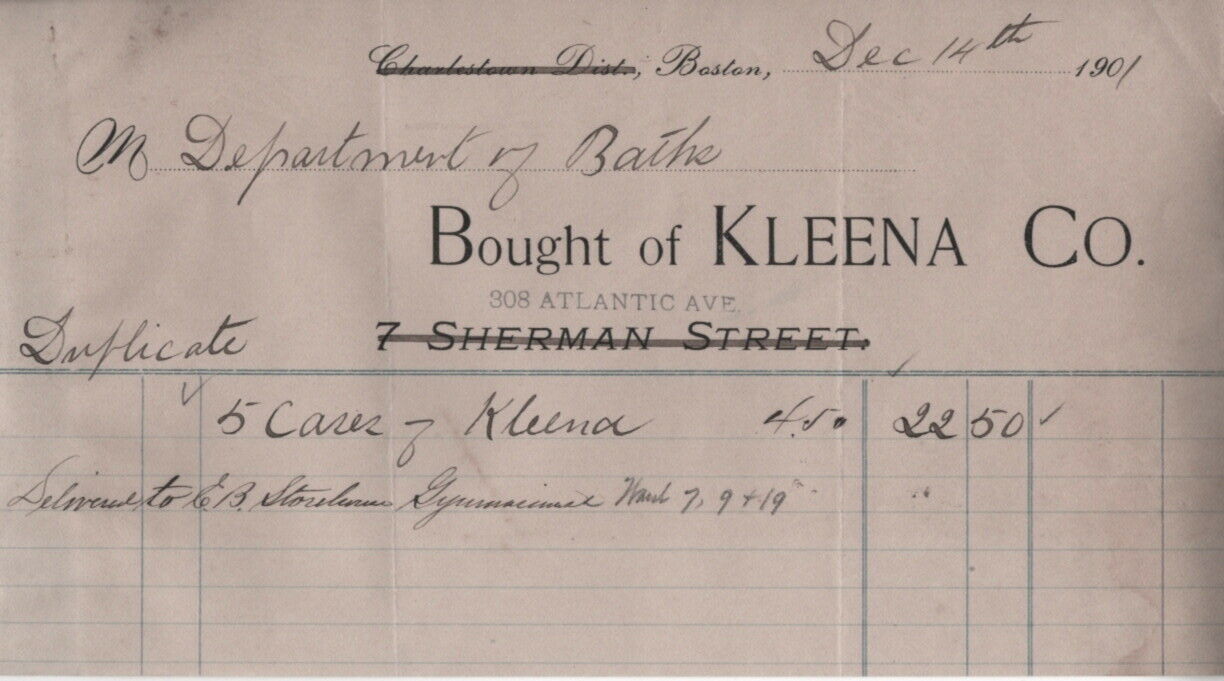 Charlestown Dist., Boston, Dec 14th 1901
M Department of Baths
Bought of KLEENA CO.
308 ATLANTIC AVE.
Duplicate 7 SHERMAN STREET.
5 Cases of Kleena 4.50 22 50
Delivered to E.B. Storehouse Gymnasiums Ward 7, 9 + 19